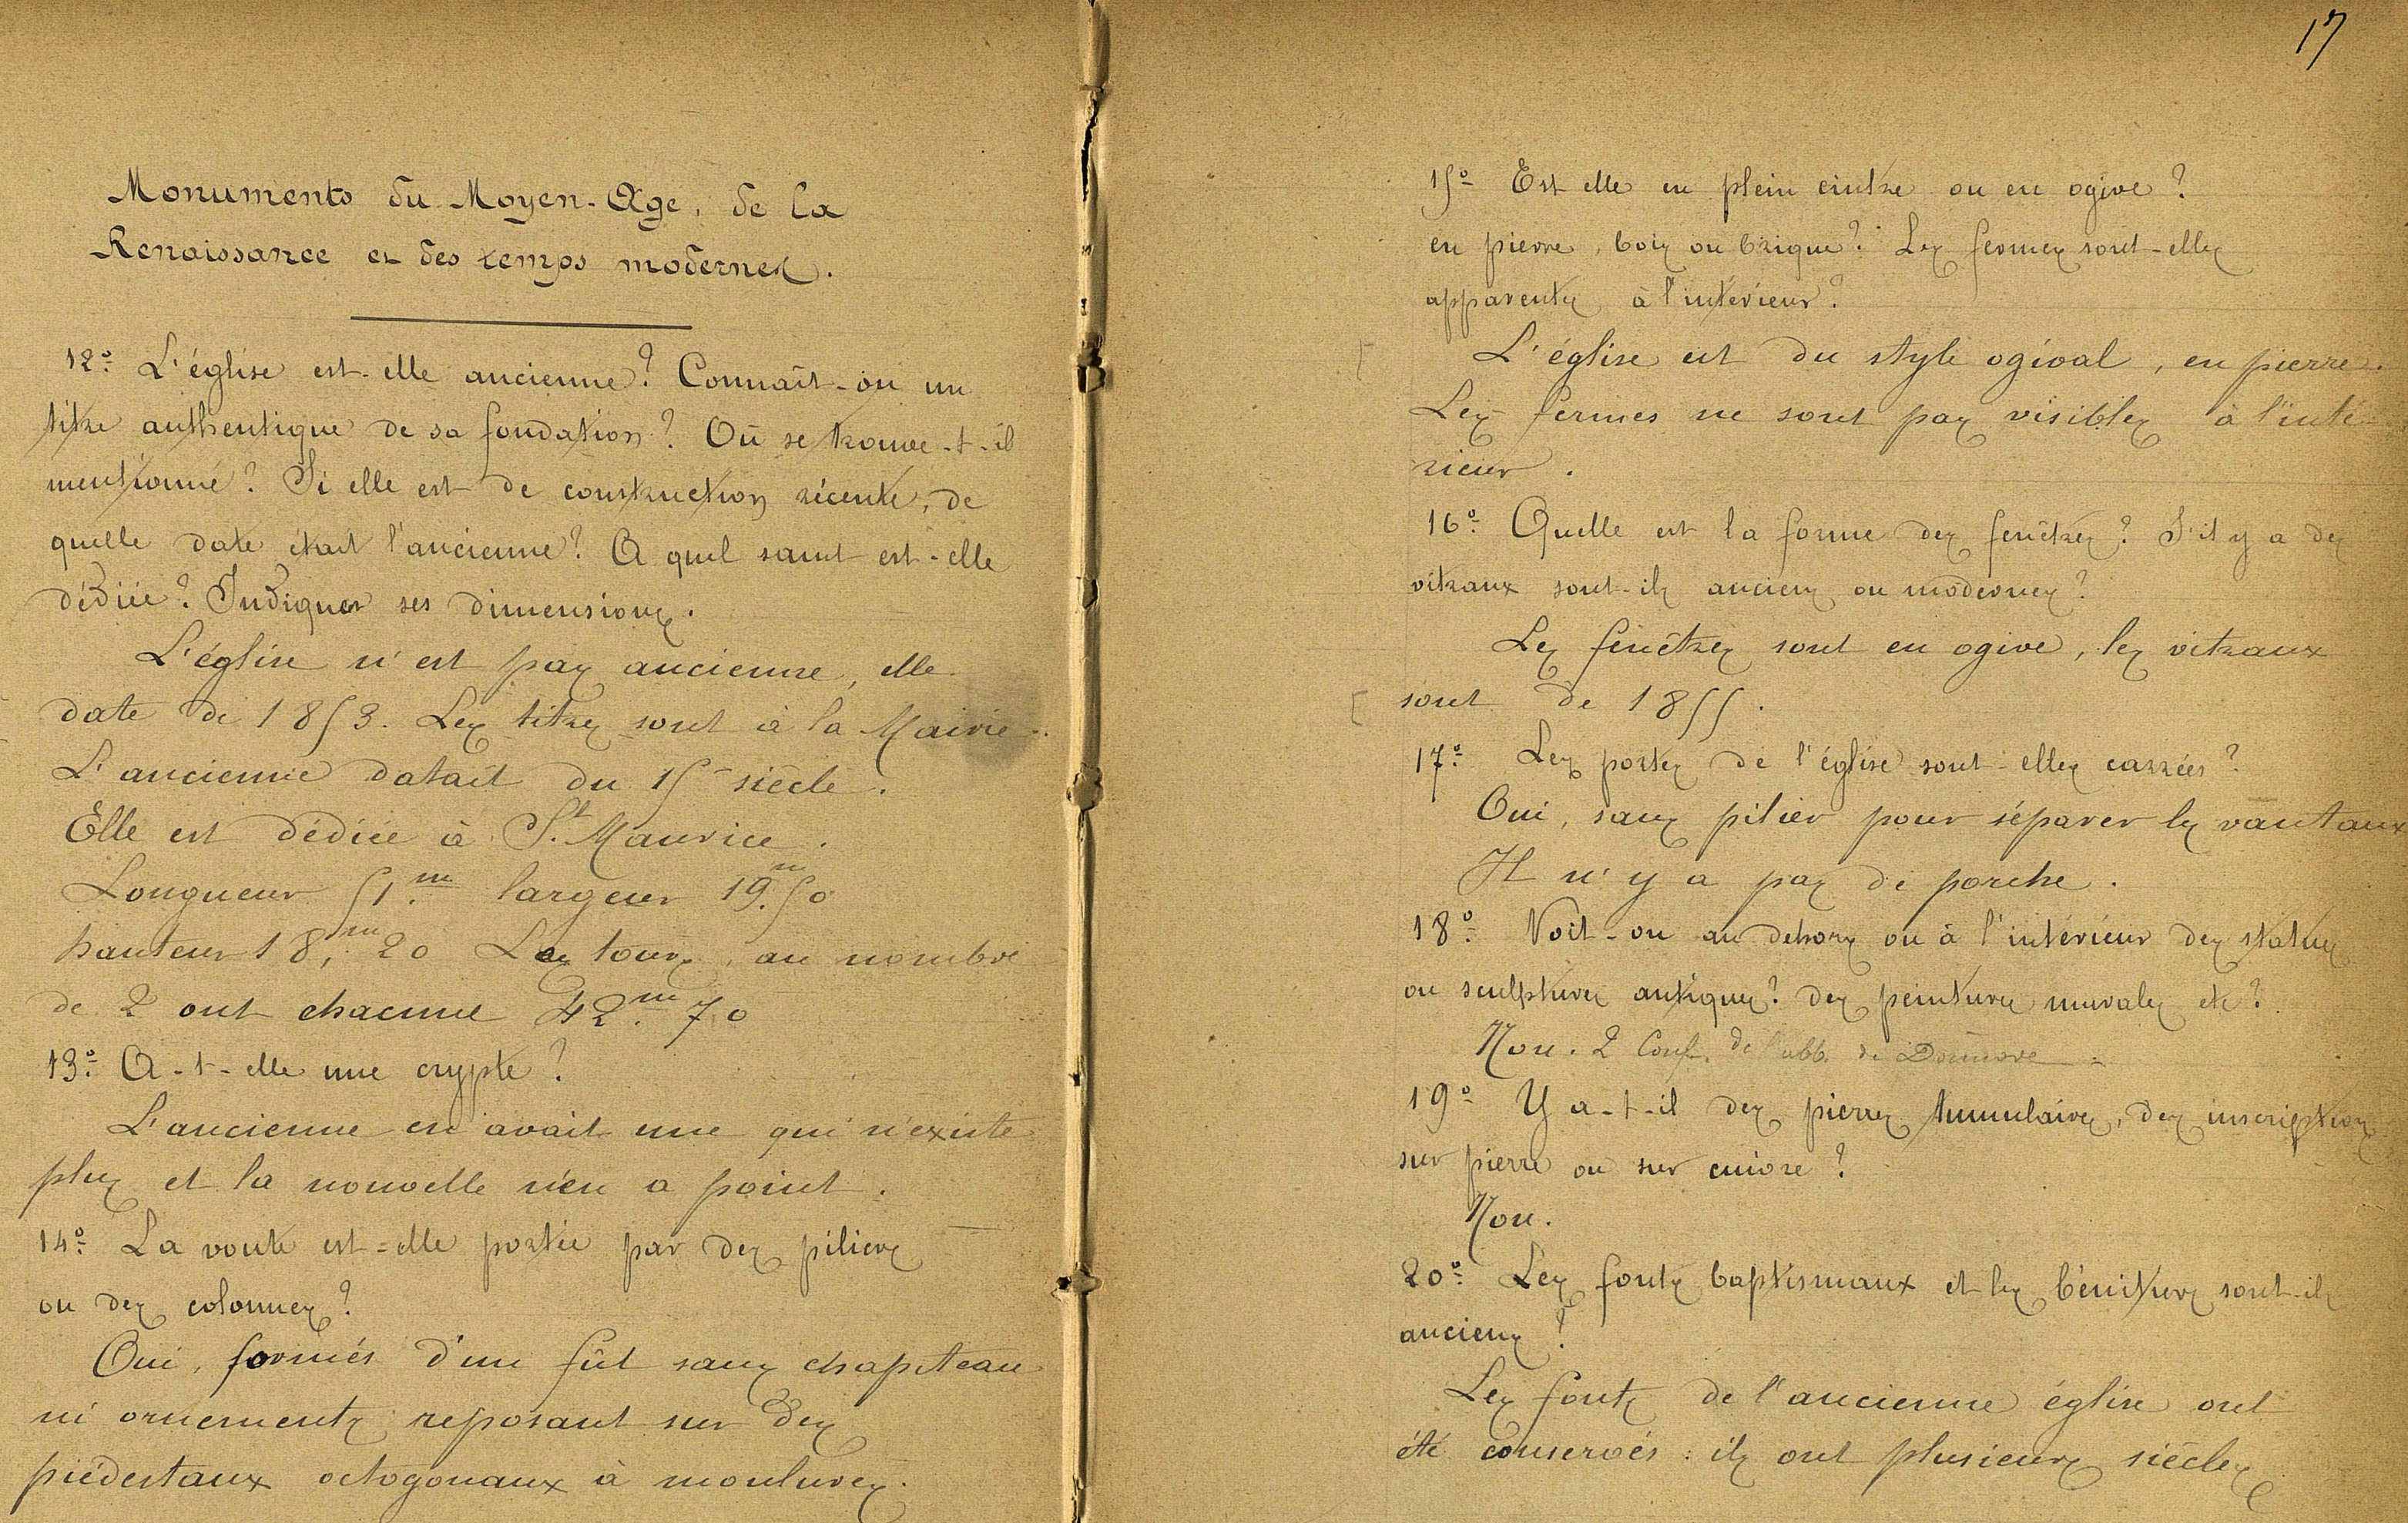 Monuments du Moyen-Age, de la
Renaissance et des temps modernes.
12º. L'église est-elle ancienne? Connaît-on un
titre authentique de sa fondation? Où se trouve-t-il
mentionné? Si elle est de construction récente, de
quelle date était l'ancienne? A quel saint est-elle
dédiée? Indiquer ses dimensions.
L'église n'est pas ancienne, elle
date de 1853. Les titres sont à la Mairie.
L'ancienne datait du 15e siècle.
Elle est dédiée à St. Maurice.
Longueur 51.m largeur 19.m50
hauteur 18,m20 Les tours, au nombre
de 2 ont chacune 42.m70
13º. A-t-elle une crypte?
L'ancienne en avait une qui n'existe
plus et la nouvelle n'en a point.
14º. La voute est-elle portée par des piliers
ou des colonnes?
Oui, formés d'un fût sans chapiteau
ni ornements reposant sur des
piédestaux octogonaux à moulures.
17
15º Est elle en plein cintre ou en ogive?
en pierre, bois ou brique? Les fermes sont-elles
apparentes à l'intérieur?
L'église est du style ogival, en pierre.
Les fermes ne sont pas visibles à l'inté-
rieur.
16º. Quelle est la forme des fenêtres? S'il y a des
vitraux sont-ils anciens ou modernes?
Les fenêtres sont en ogive, les vitraux
sont de 1855.
17º. Les portes de l'église sont-elles carrées?
Oui, sans pilier pour séparer les vantaux
Il n'y a pas de porche.
18º. Voit-on au dehors ou à l'intérieur des statues
ou sculptures antiques? des peintures murales etc?
Non. 2 Conf. de l'abb. de Domèvre.
19º Y a-t-il des pierres tumulaires, des inscriptions
sur pierre ou sur cuivre?
Non.
20º. Les fonts baptismaux et les bénitiers sont-ils
anciens?
Les fonts de l'ancienne église ont
été conservés: ils ont plusieurs siècles